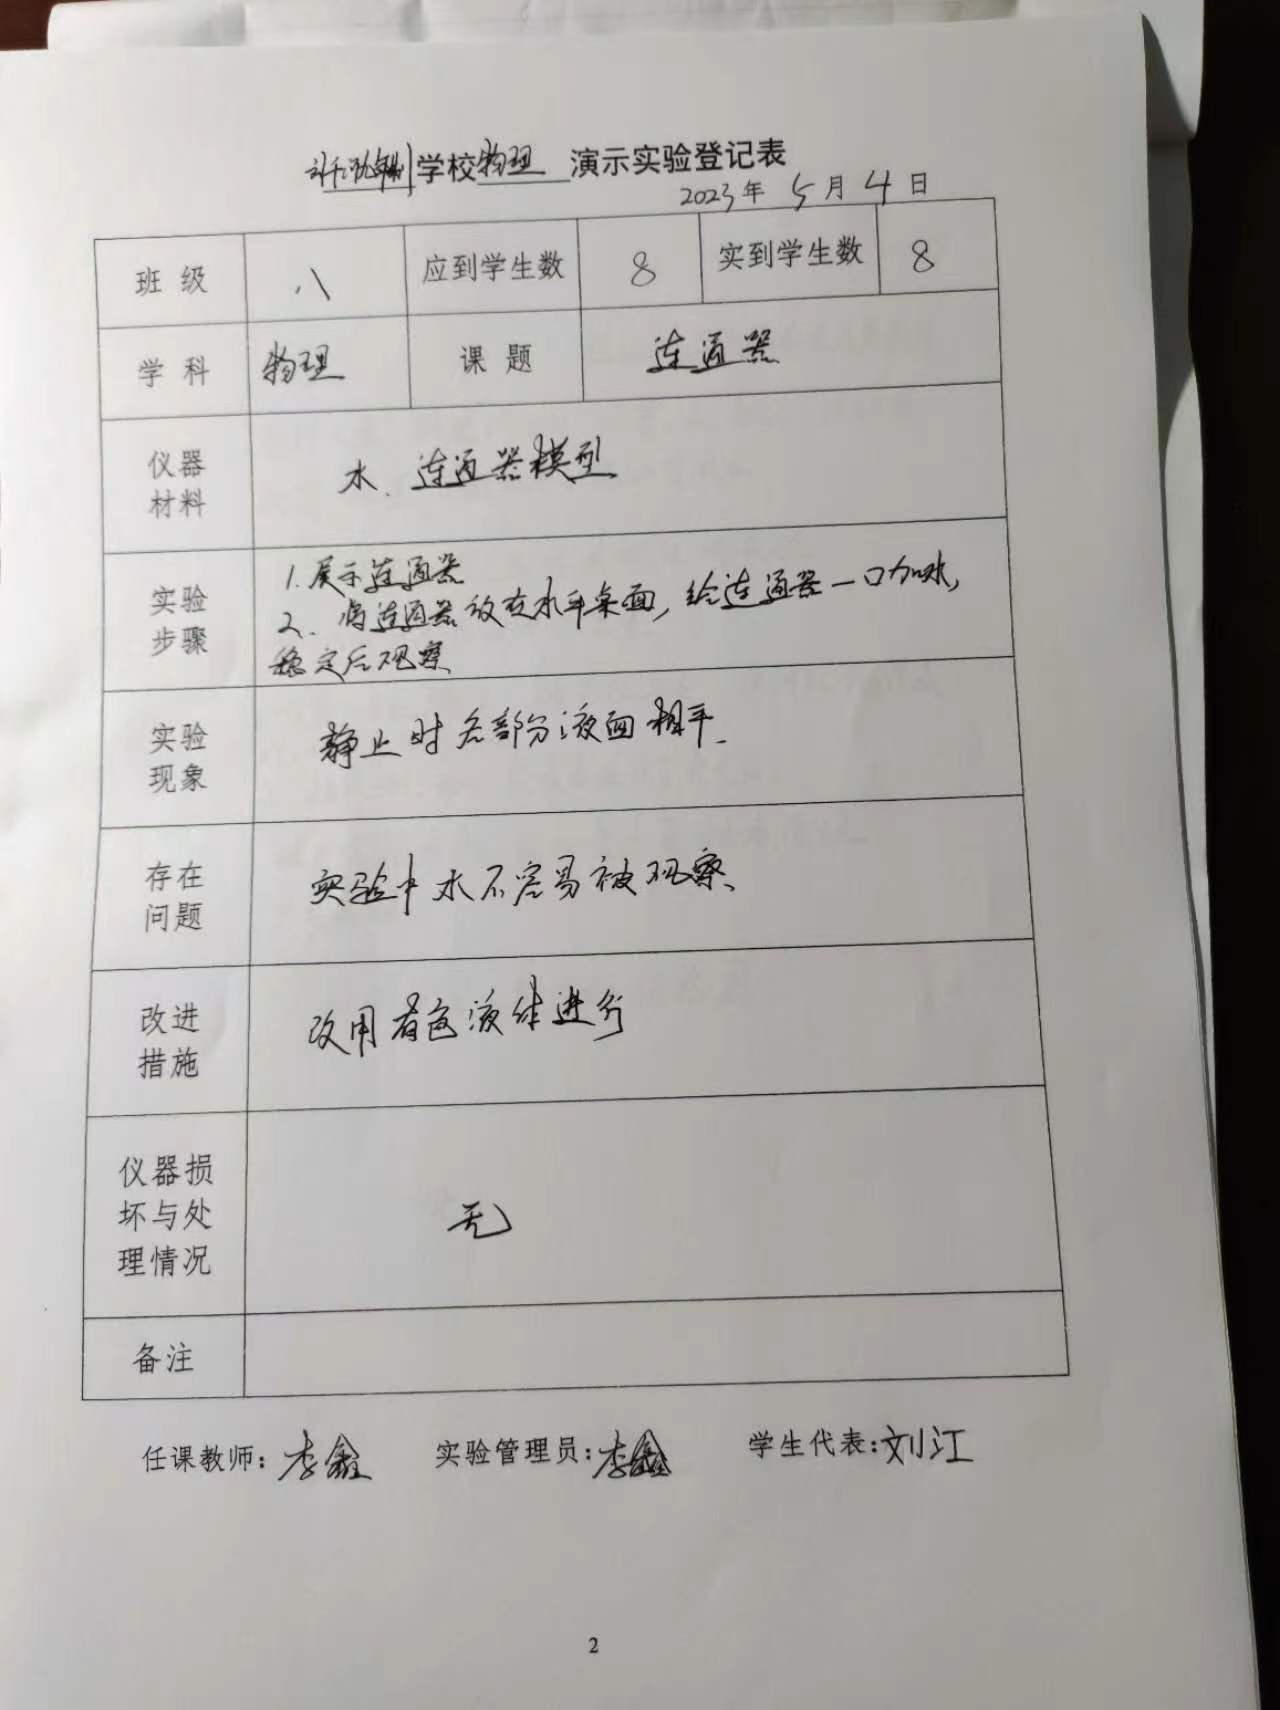 学校物理 演示实验登记表
2023年 5月4日
班 级 八 应到学生数 8 实到学生数 8
学 科 物理 课 题 连通器
仪器
材料
水、连通器模型
实验
步骤
1.展示连通器
2、将连通器放在水平桌面,给连通器一口加水,
稳定后观察
实验
现象
静止时各部分液面相平、
存在
问题
实验中水不容易被观察、
改进
措施
改用有色液体进行
仪器损
坏与处
理情况
无
备注
任课教师:李鑫 实验管理员:李鑫 学生代表:刘江
2